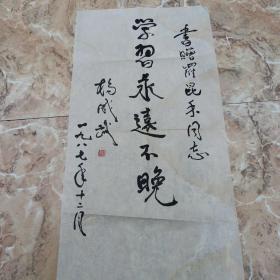 書贈前昆系同志
學習永遠不晚
楊成武
一九八七年十二月